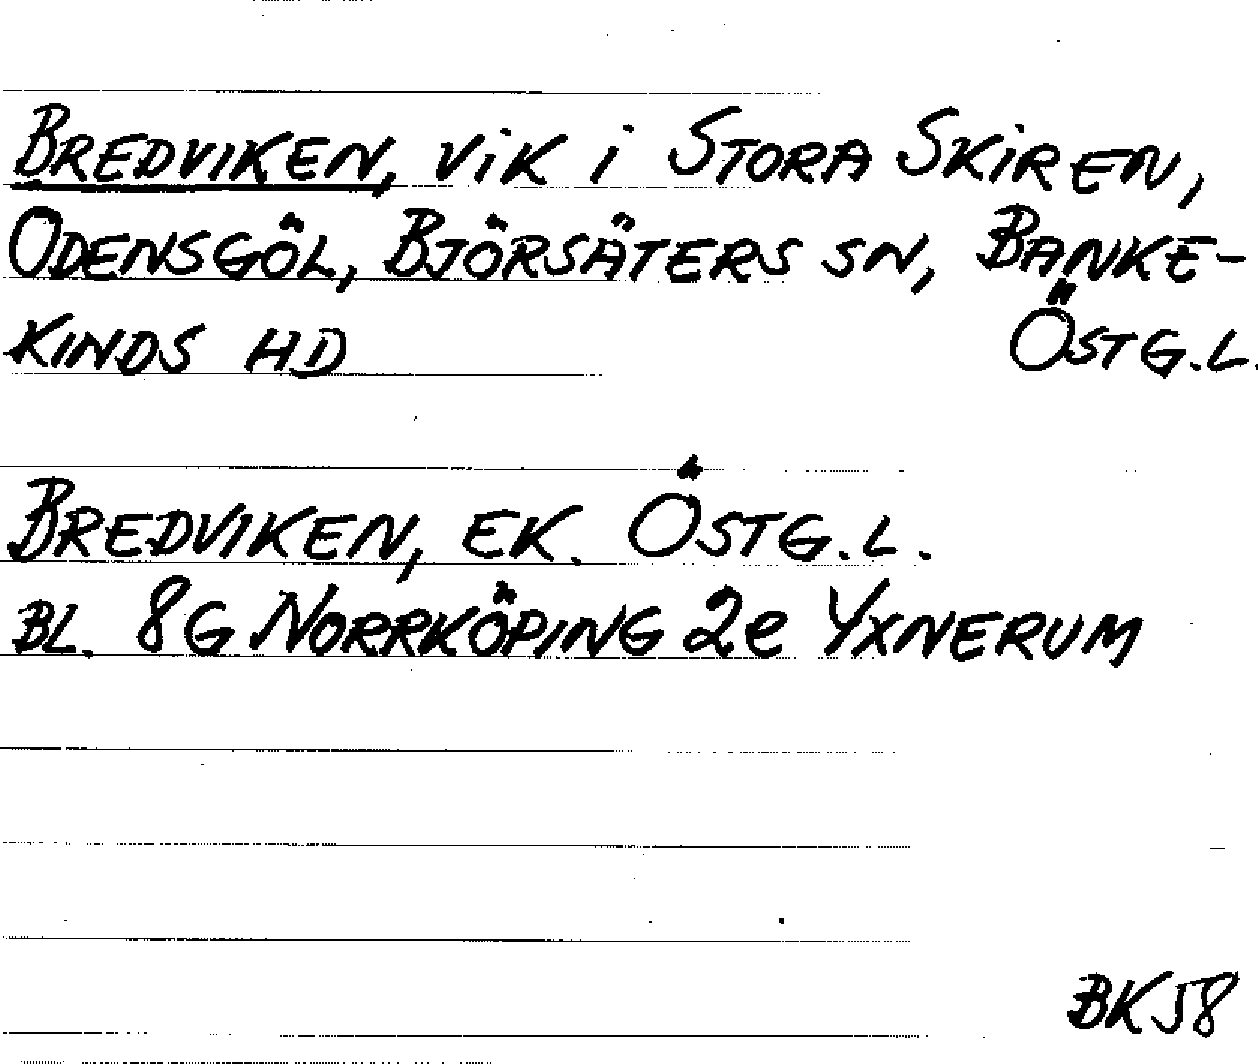 BREDVIKEN, VIK I STORA SKIREN,
ODENSGÖL, BJÖRSÄTERS SN, BANKE-
KINDS HD ÖSTG.L.
BREDVIKEN, EK. ÖSTG.L.
BL. 8G NORRKÖPING 2e YXNERUM
BK58